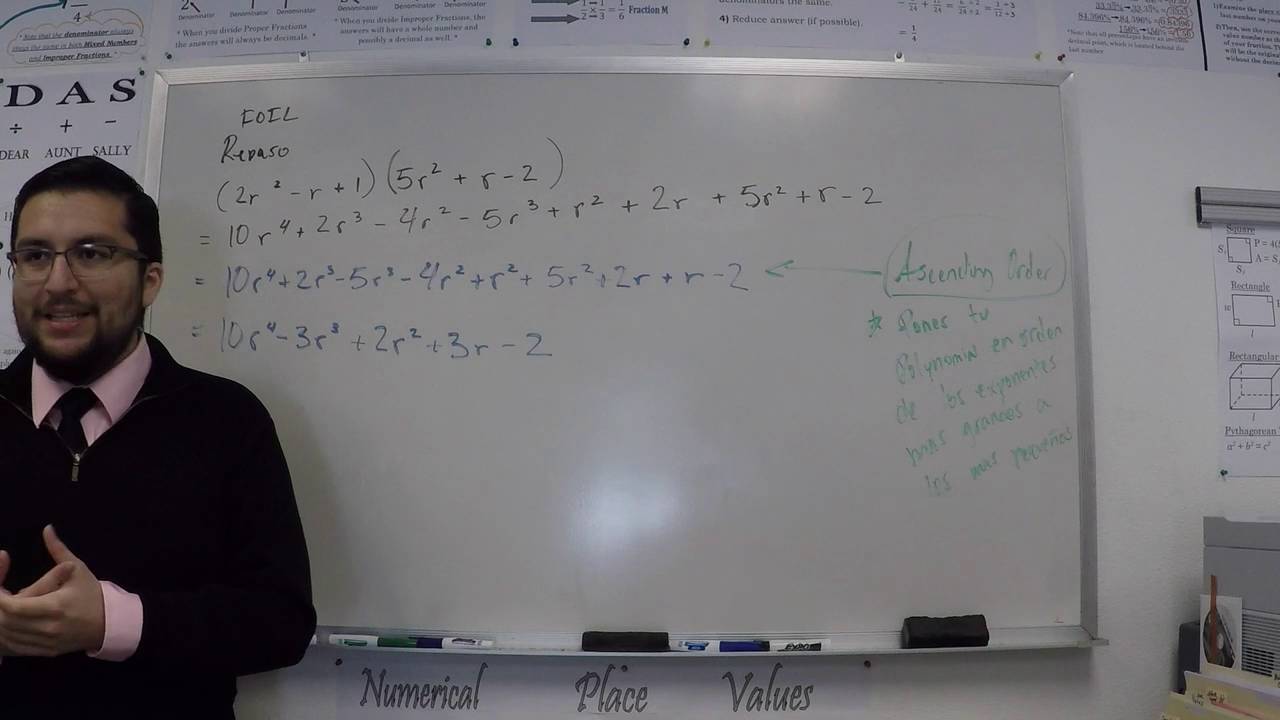 4
* Note that the denominator always
stays the same in both Mixed Numbers
and Improper Fractions. *
Denominator Denominator Denominator
* When you divide Proper Fractions
the answers will always be decimals. *
Denominator Denominator Denominator
* When you divide Improper Fractions, the
answers will have a whole number and
possibly a decimal as well. *
Fraction M
denominators the same.
4) Reduce answer (if possible).
= 1/4
DAS
÷ + −
DEAR AUNT SALLY
FOIL
Repaso
(2r² - r + 1)(5r² + r - 2)
= 10r⁴ + 2r³ - 4r² - 5r³ + r² + 2r + 5r² + r - 2
= 10r⁴ + 2r³ - 5r³ - 4r² + r² + 5r² + 2r + r - 2
= 10r⁴ - 3r³ + 2r² + 3r - 2
Ascending Order
* Pones tu
Polynomia en orden
de los exponentes
mas grandes a
los mas pequeños
Square
Rectangle
Rectangular
Pythagorean
a² + b² = c²
EXPO
Numerical Place Values